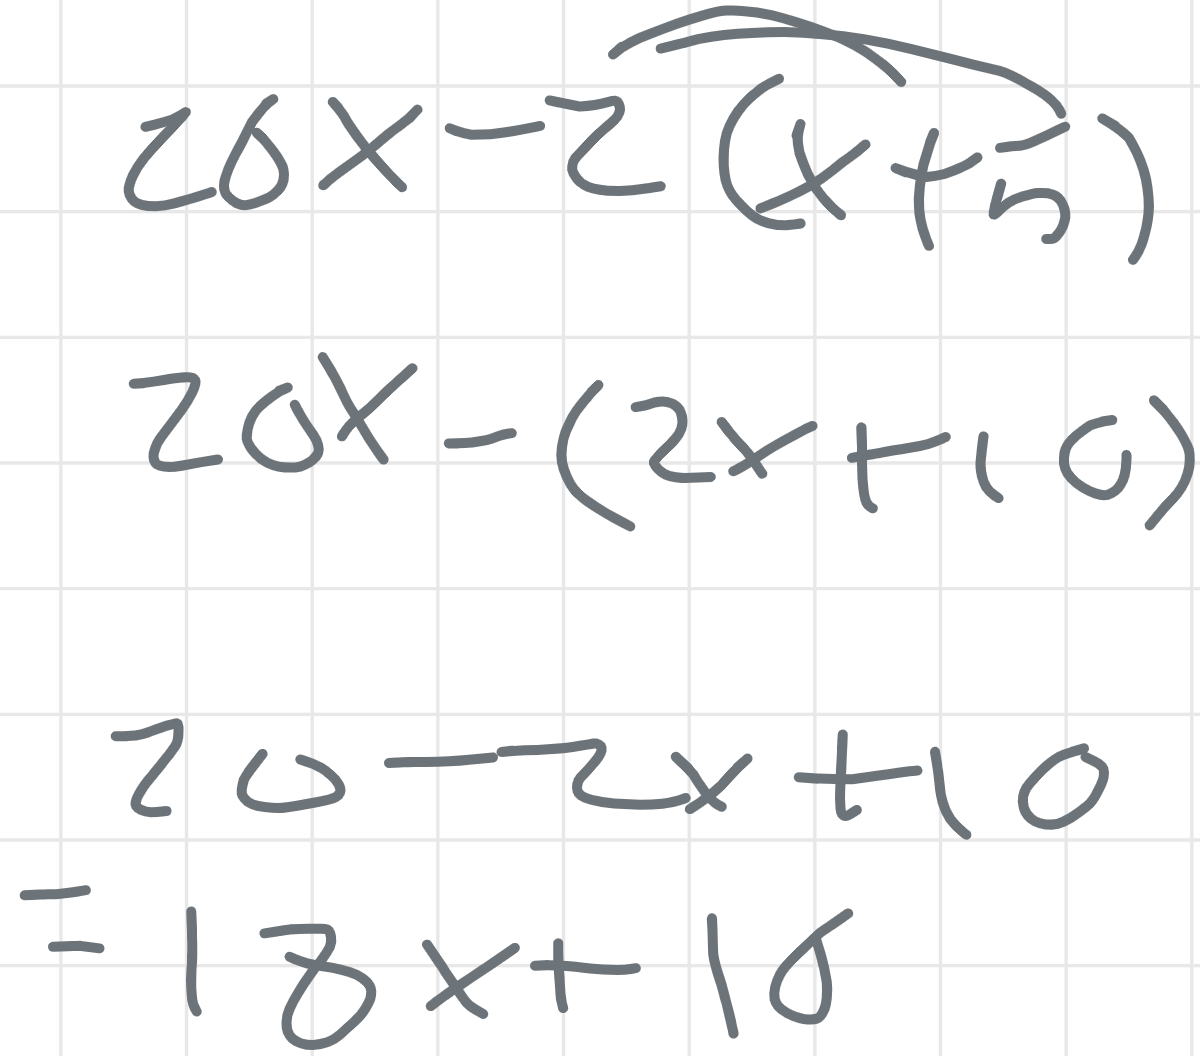 20x-2(x+5)
20x-(2x+10)
20-2x+10
=18x+10